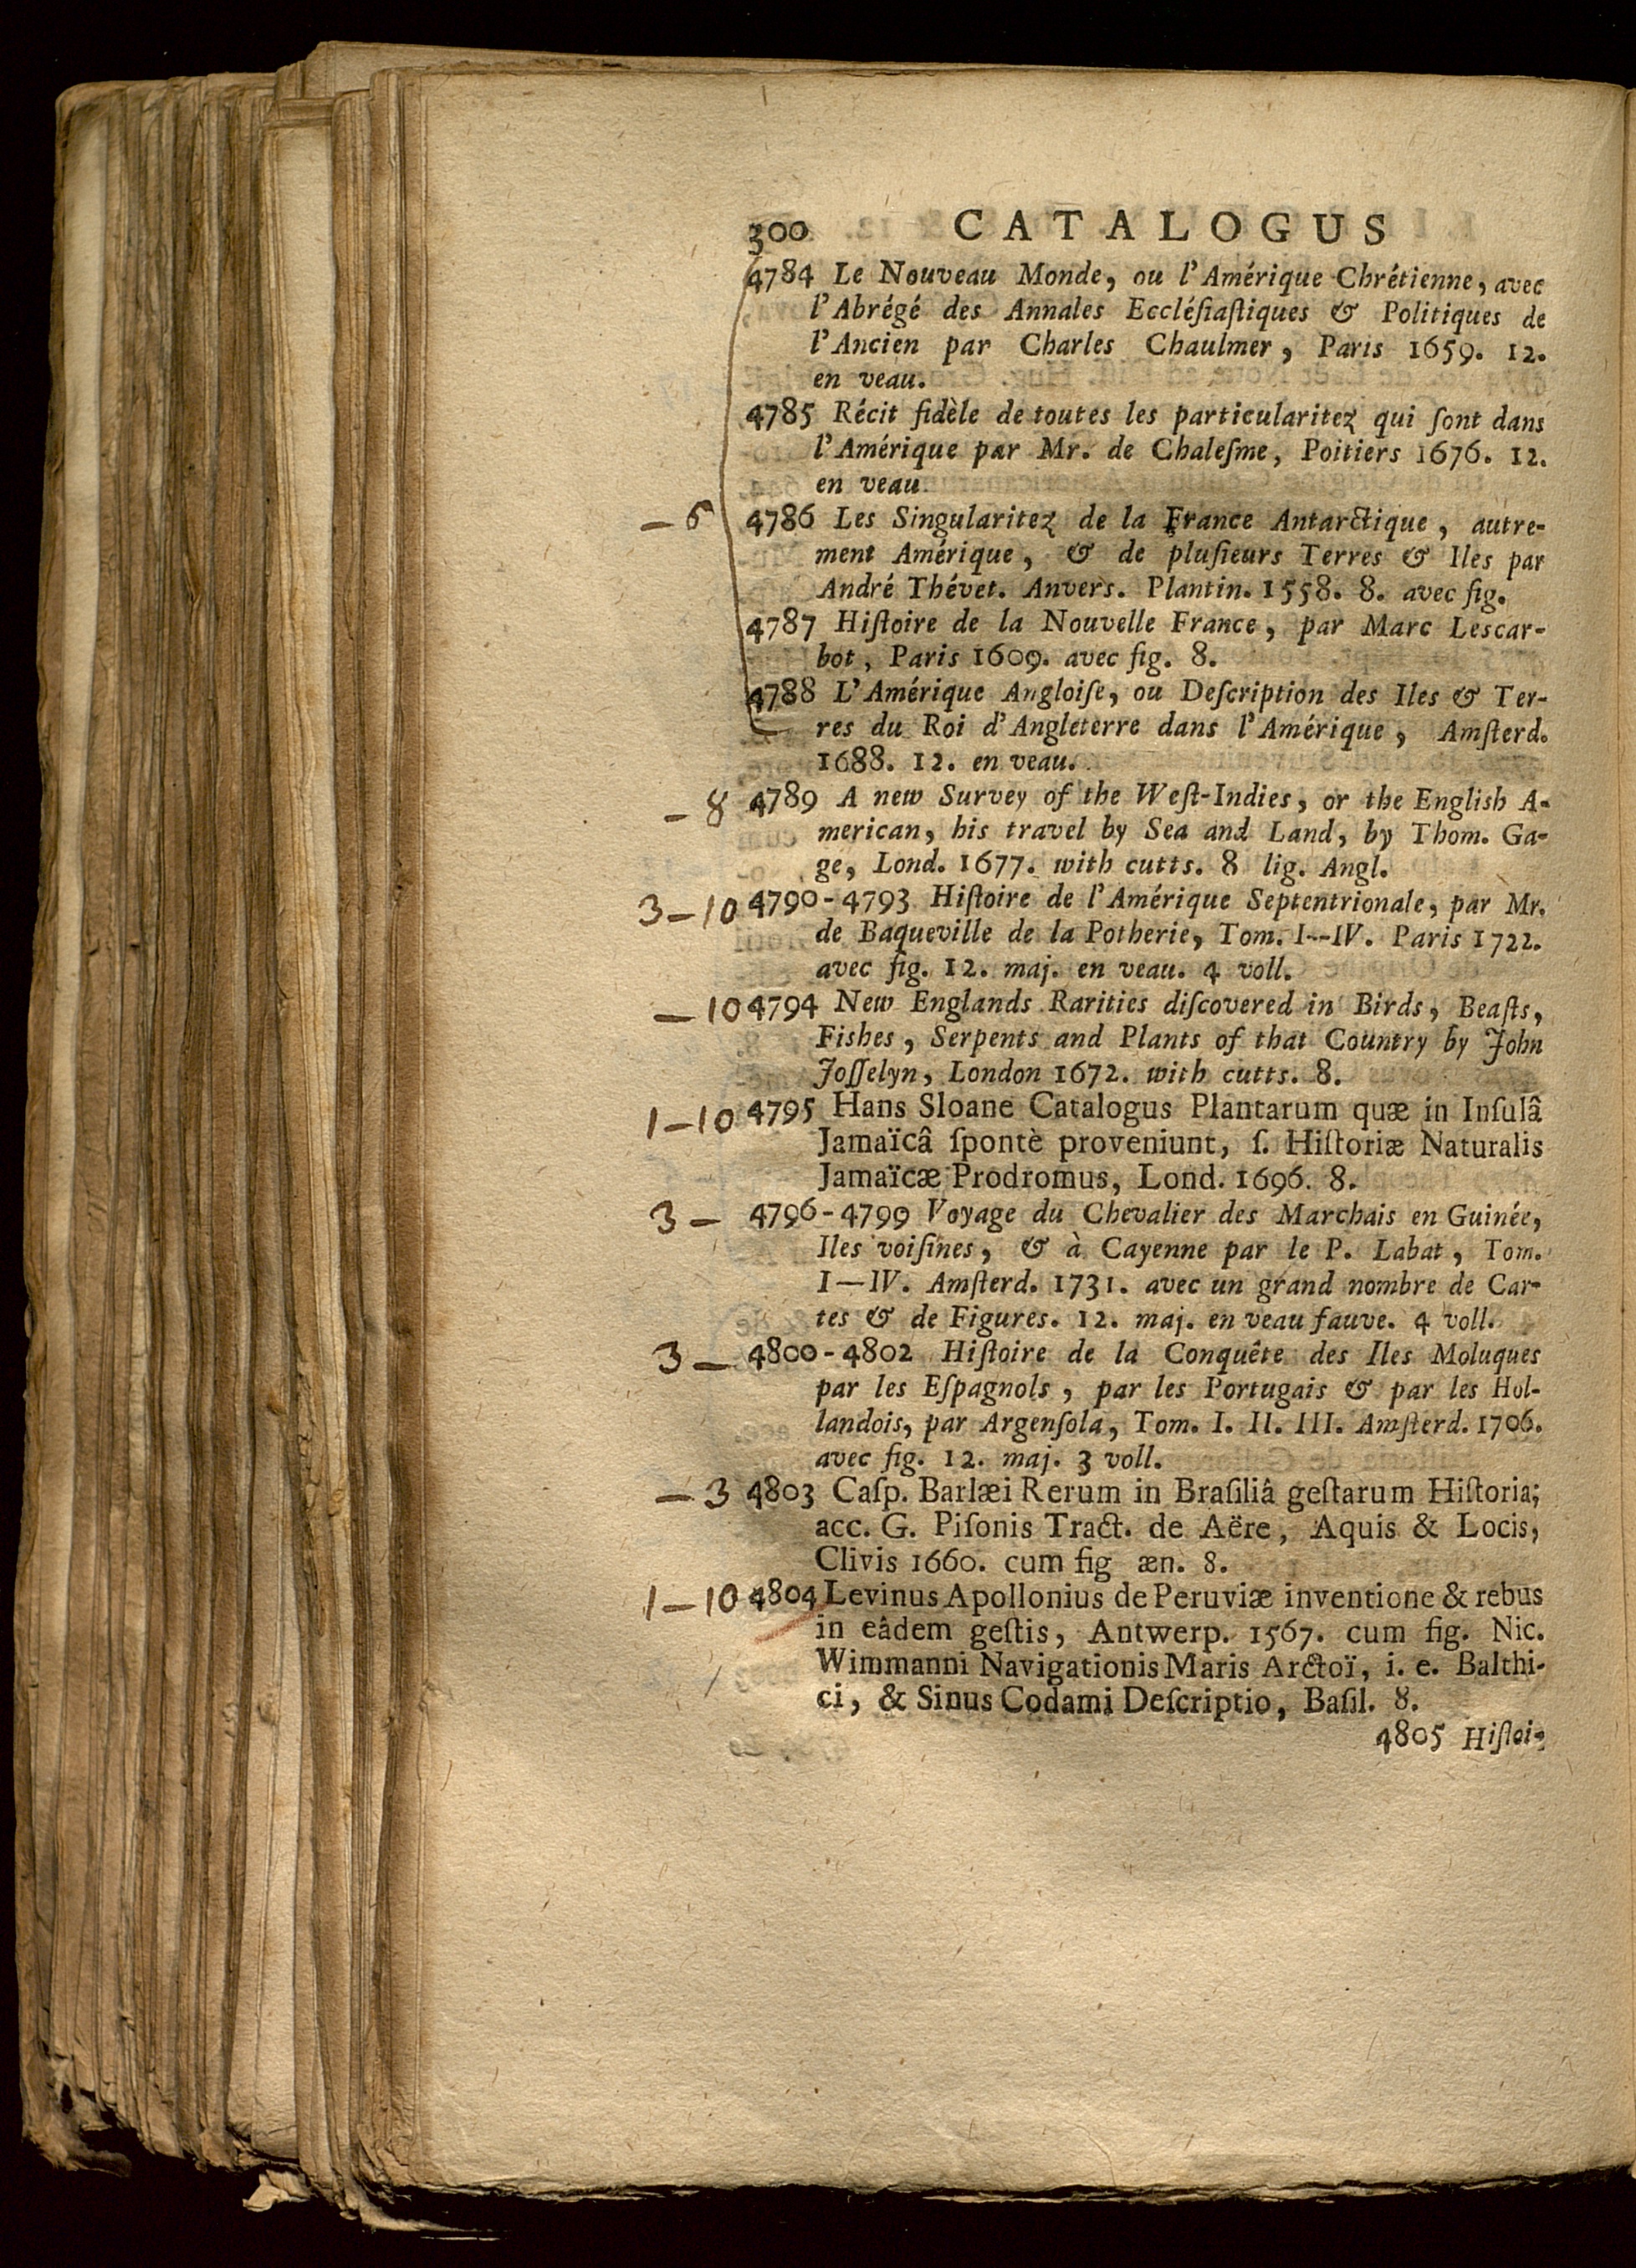 300 CATALOGUS
4784 Le Nouveau Monde, ou l'Amérique Chrétienne, avec
l'Abrégé des Annales Eccléſiaſtiques & Politiques de
l'Ancien par Charles Chaulmer, Paris 1659. 12.
en veau.
4785 Récit fidèle de toutes les particularitez qui ſont dans
l'Amérique par Mr. de Chaleſme, Poitiers 1676. 12.
en veau.
– 6 4786 Les Singularitez de la France Antarctique, autre-
ment Amérique, & de pluſieurs Terres & Iles par
André Thévet. Anvers. Plantin. 1558. 8. avec fig.
4787 Hiſtoire de la Nouvelle France, par Marc Lescar-
bot, Paris 1609. avec fig. 8.
4788 L'Amérique Angloiſe, ou Deſcription des Iles & Ter-
res du Roi d'Angleterre dans l'Amérique, Amſterd.
1688. 12. en veau.
– 8 4789 A new Survey of the Weſt-Indies, or the English A-
merican, his travel by Sea and Land, by Thom. Ga-
ge, Lond. 1677. with cutts. 8 lig. Angl.
3–10 4790-4793 Hiſtoire de l'Amérique Septentrionale, par Mr.
de Baqueville de la Potherie, Tom. I--IV. Paris 1722.
avec fig. 12. maj. en veau. 4 voll.
–10 4794 New Englands Rarities diſcovered in Birds, Beaſts,
Fishes, Serpents and Plants of that Country by John
Joſſelyn, London 1672. with cutts. 8.
1–10 4795 Hans Sloane Catalogus Plantarum quæ in Inſulâ
Jamaïcâ ſpontè proveniunt, ſ. Hiſtoriæ Naturalis
Jamaïcæ Prodromus, Lond. 1696. 8.
3 – 4796-4799 Voyage du Chevalier des Marchais en Guinée,
Iles voiſines, & à Cayenne par le P. Labat, Tom.
I—IV. Amſterd. 1731. avec un grand nombre de Car-
tes & de Figures. 12. maj. en veau fauve. 4 voll.
3 – 4800-4802 Hiſtoire de la Conquête des Iles Moluques
par les Eſpagnols, par les Portugais & par les Hol-
landois, par Argenſola, Tom. I. II. III. Amſterd. 1706.
avec fig. 12. maj. 3 voll.
– 3 4803 Caſp. Barlæi Rerum in Braſiliâ geſtarum Hiſtoria;
acc. G. Piſonis Tract. de Aëre, Aquis & Locis,
Clivis 1660. cum fig æn. 8.
1–10 4804 Levinus Apollonius de Peruviæ inventione & rebus
in eâdem geſtis, Antwerp. 1567. cum fig. Nic.
Wimmanni Navigationis Maris Arctoï, i. e. Balthi-
ci, & Sinus Codami Deſcriptio, Baſil. 8.
4805 Hiſtoi-